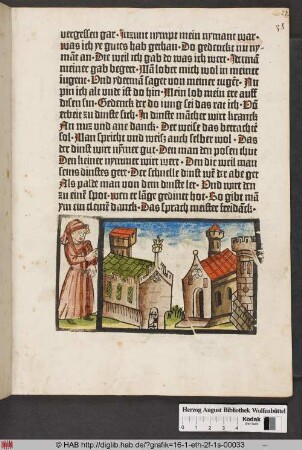 vergessen gar. Jzunt nympt mein nymant war.
was ich ye gutes hab gethan. Do gedenckt nu ny
mãt an. Die weil ich gab do was ich wert. Jederman
meiner gab begert. Mã lobet mich wol in meiner
iugent. Vnd yderman saget von meiner tugẽt. Nu
pin ich alt vnd ist do hin. Mein lob mein ere auff
disen sin. Gedenck der do iung sei das rat ich. Vñ
erbeite zu dinste dich. Jn dinste mãcher wirt kranck
An nutz vnd ane danck. Der weise das betrachtẽ
sol. Man spricht vnd weiß auch selber wol. Das
der dinst wirt nymer gut. Den man den posen thut
Den keiner nymmer wirt wert. Den die weil man
seins dinstes gert. Der schnelle dinst
Als palde man von dem dinste let. Vnd wirt den
zu einẽ spot. wen er lãge gedinet hot. So gibt mã
ym ein cleine danck. Das sprach meister freidãck.
Herzog August Bibliothek Wolfenbüttel
Kodak
© HAB http://diglib.hab.de/?grafik=16-1-eth-2f-1s-00033